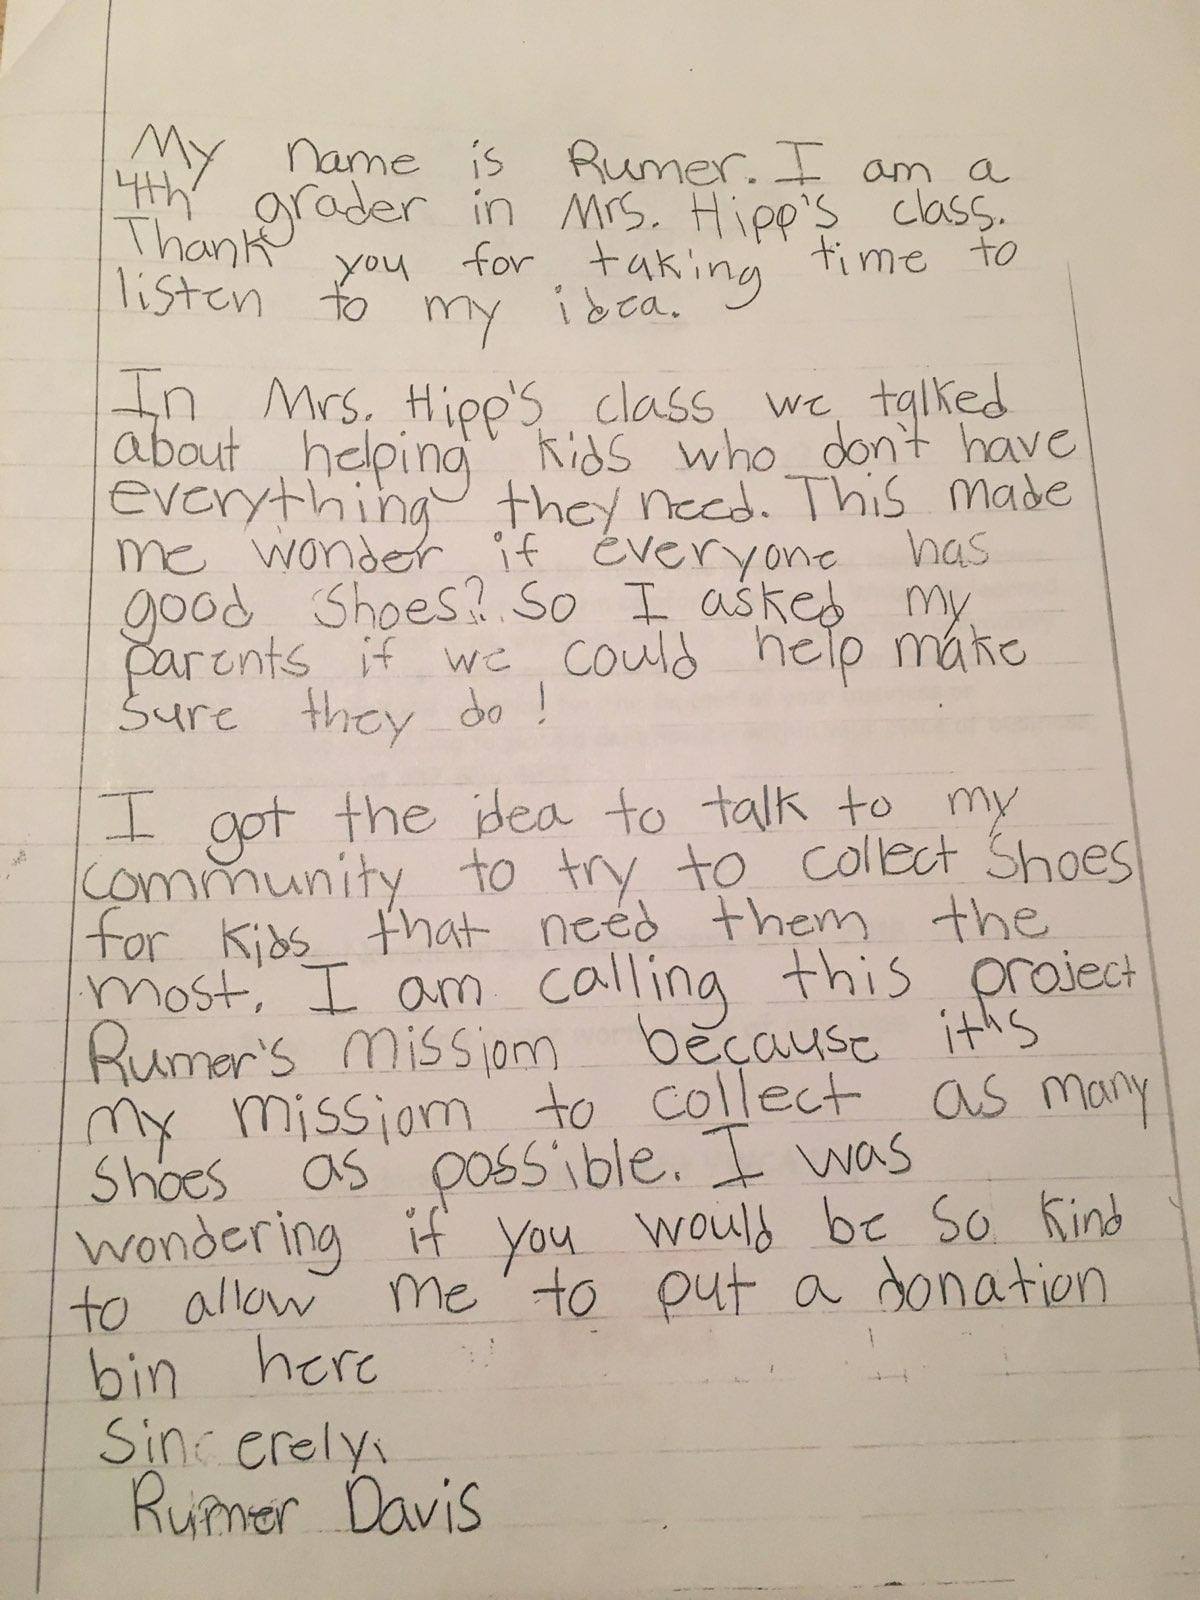 My name is Rumer. I am a
4th grader in Mrs. Hipp's class.
Thank you for taking time to
listen to my idea.
In Mrs. Hipp's class we talked
about helping kids who don't have
everything they need. This made
me wonder if everyone has
good shoes? So I asked my
parents if we could help make
sure they do!
I got the idea to talk to my
community to try to collect shoes
for kids that need them the
most. I am calling this project
Rumer's missiom because it's
my missiom to collect as many
shoes as possible. I was
wondering if you would be so kind
to allow me to put a donation
bin here
Sincerely,
Rumer Davis